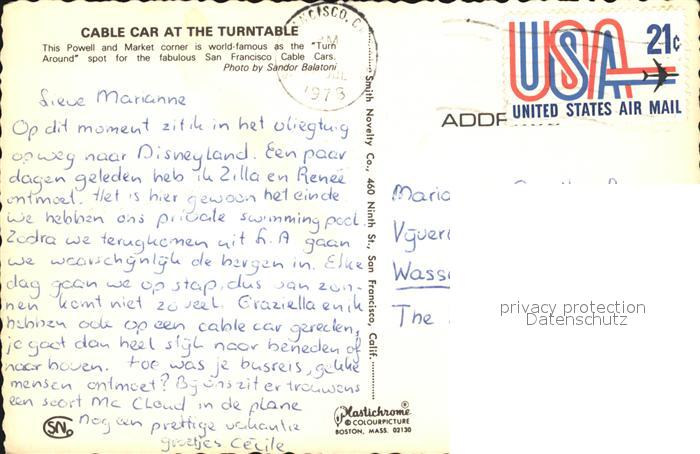 CABLE CAR AT THE TURNTABLE
This Powell and Market corner is world-famous as the "Turn
Around" spot for the fabulous San Francisco Cable Cars.
Photo by Sandor Balatoni
Lieve Marianne
Op dit moment zit ik in het vliegtuig
op weg naar Disneyland. Een paar
dagen geleden heb ik Zilla en Reneé
ontmoet. Het is hier gewoon het einde
we hebben ons private swimming pool.
Zodra we terugkomen uit L.A gaan
we waarschijnlijk de bergen in. Elke
dag gaan we op stap, dus van zon-
nen komt niet zoveel. Graziella en ik
hebben ook op een cable car gereden,
je gaat dan heel stijl naar beneden of
naar boven. Hoe was je busreis, gekke
mensen ontmoet? Bij ons zit er trouwens
een soort Mc Cloud in de plane
Nog een prettige vakantie
groetjes Cécile
SN
Smith Novelty Co., 460 Ninth St., San Francisco, Calif.
Plastichrome
© COLOURPICTURE
BOSTON, MASS. 02130
1973
USA 21¢
UNITED STATES AIR MAIL
ADDR
Maria
Vijver
Wass
The
privacy protection
Datenschutz